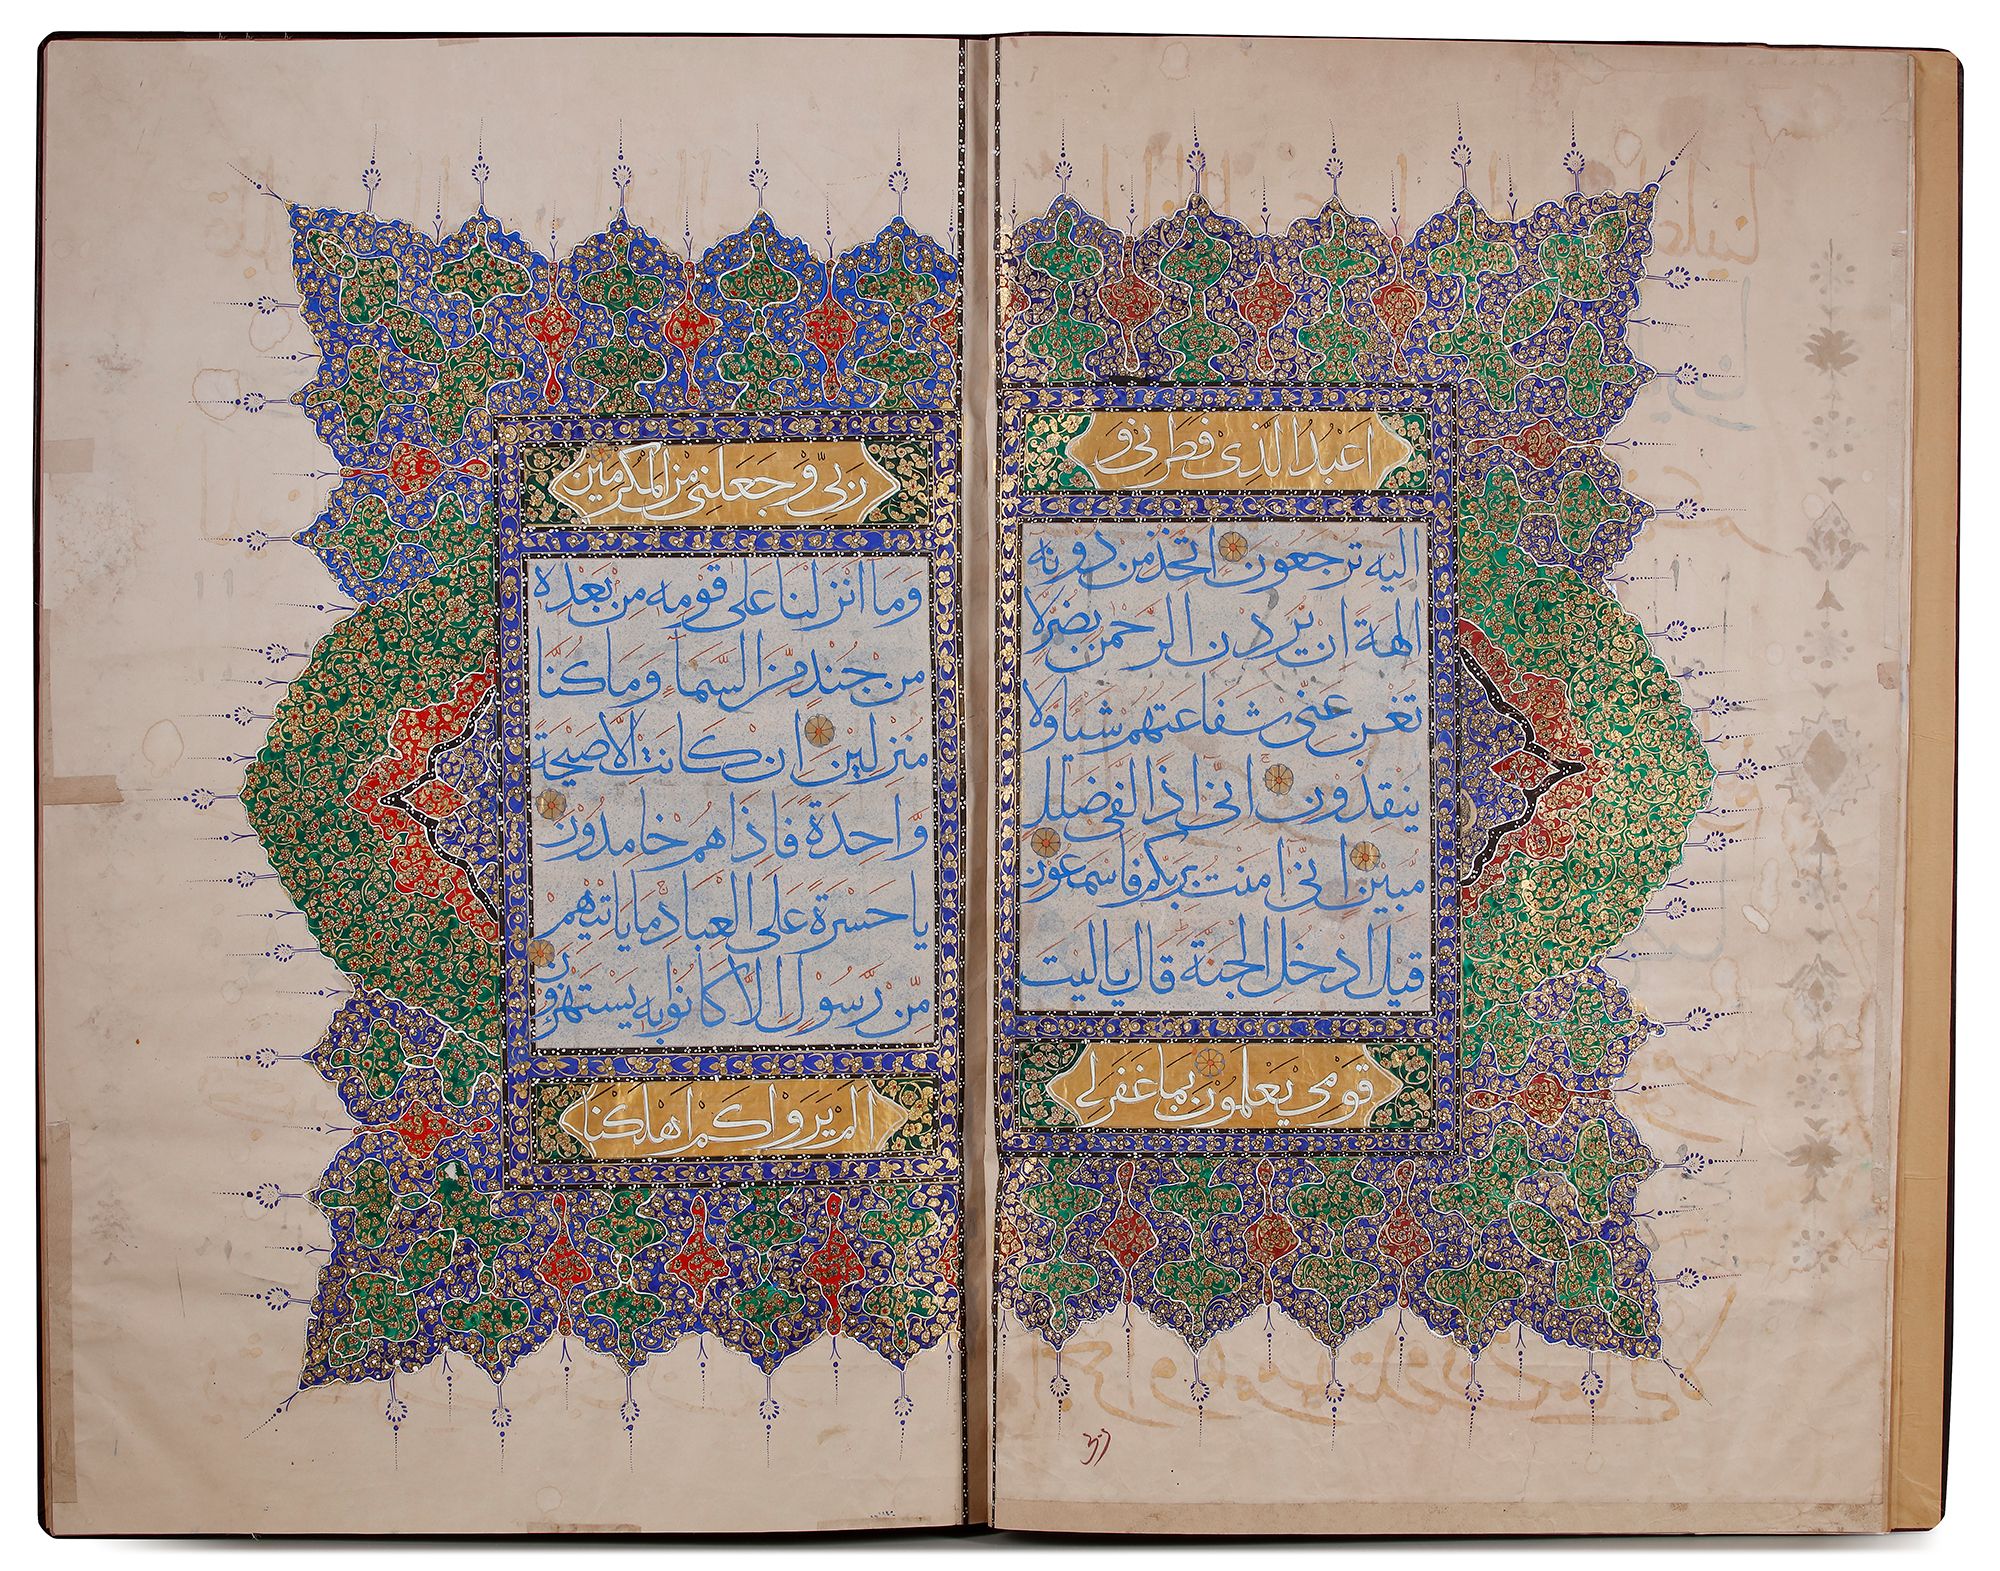 اعبد الذى فطرنى و
اليه ترجعون اتخذ من دونه
الهة ان يردن الرحمن بضر لا
تغن عنى شفاعتهم شيا ولا
ينقذون انى اذا لفى ضلل
مبين انى امنت بربكم فاسمعون
قيل ادخل الجنة قال ياليت
قومى يعلمون بما غفر لى
ربى و جعلنى من المكرمين
وما انزلنا على قومه من بعده
من جند من السماء وما كنا
منزلين ان كانت الا صيحة
واحدة فاذا هم خامدون
يا حسرة على العباد ما ياتيهم
من رسول الا كانوا به يستهزون
الم يروا كم اهلكنا